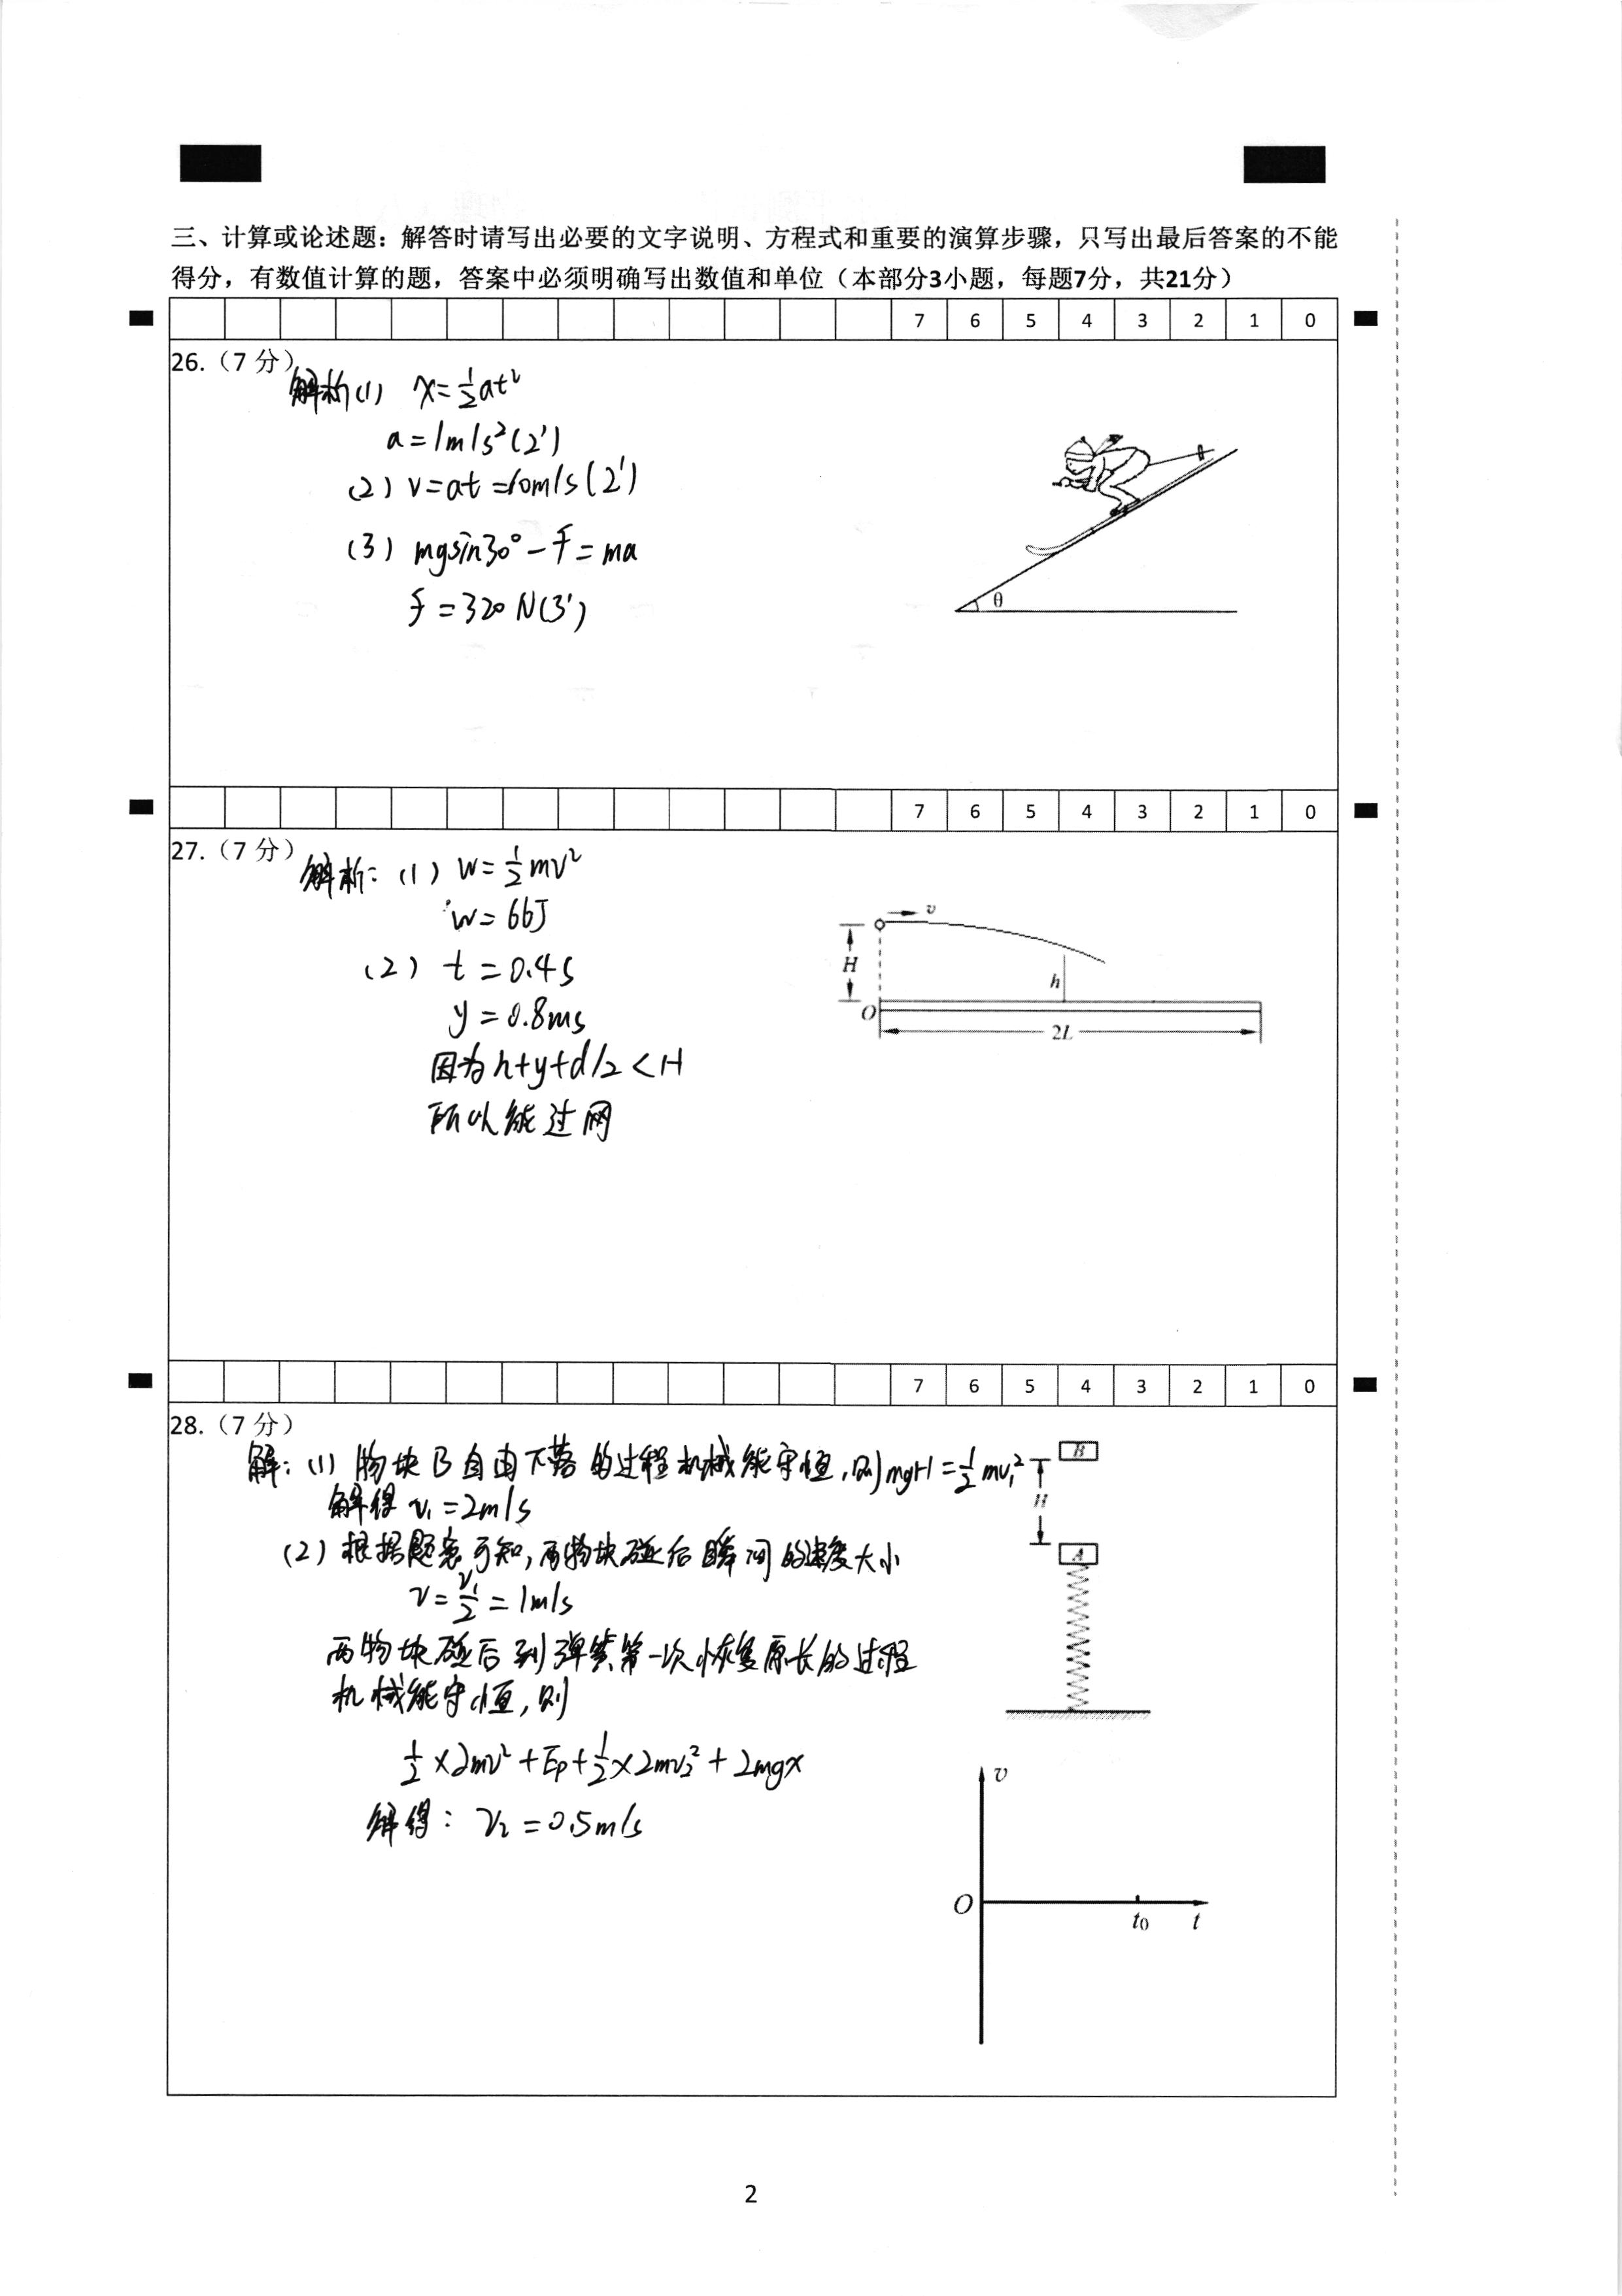 三、计算或论述题：解答时请写出必要的文字说明、方程式和重要的演算步骤，只写出最后答案的不能
得分，有数值计算的题，答案中必须明确写出数值和单位（本部分3小题，每题7分，共21分）
7 6 5 4 3 2 1 0
26.（7 分）
解析(1) x=½at²
a=1m/s²(2')
(2) v=at=10m/s(2')
(3) mgsin30°-f=ma
f=320N(3')
θ
7 6 5 4 3 2 1 0
27.（7 分）
解析：(1) W=½mv²
W=66J
(2) t=0.4s
y=0.8ms
因为h+y+d/2<H
所以能过网
v
H
h
O
2L
7 6 5 4 3 2 1 0
28.（7 分）
解：(1) 物块B自由下落的过程机械能守恒，则mgH=½mv₁²
解得 v₁=2m/s
(2) 根据题意可知，两物块碰后瞬间的速度大小
v=v₁/2=1m/s
两物块碰后到弹簧第一次恢复原长的过程
机械能守恒，则
½×2mv²+Ep+½×2mv₂²+2mgx
解得：v₂=0.5m/s
B
H
A
v
O
t₀ t
2